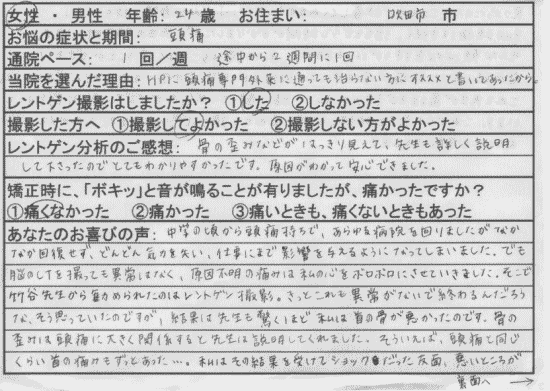 女性 ・ 男性 年齢: 24 歳 お住まい: 吹田市 市
お悩の症状と期間: 頭痛
通院ペース: 1 回/週 途中から2週間に1回
当院を選んだ理由: HPに頭痛専門外来に通っても治らない方にオススメと書いてあったから。
レントゲン撮影はしましたか? ①した ②しなかった
撮影した方へ ①撮影してよかった ②撮影しない方がよかった
レントゲン分析のご感想: 骨の歪みなどがはっきり見えて、先生も詳しく説明
して下さったのでとてもわかりやすかったです。原因がわかって安心できました。
矯正時に、「ボキッ」と音が鳴ることが有りましたが、痛かったですか?
①痛くなかった ②痛かった ③痛いときも、痛くないときもあった
あなたのお喜びの声: 中学の頃から頭痛持ちで、あらゆる病院を回りましたがなか
なか回復せず、どんどん気力を失い、仕事にまで影響を与えるようになってしまいました。でも
脳のCTを撮っても異常はなく、原因不明の痛みは私の心をボロボロにさせていきました。そこで
竹谷先生から勧められたのはレントゲン撮影。きっとこれも異常がないで終わるんだろう
な、そう思っていたのですが、結果は先生も驚くほど私は首の骨が悪かったのです。骨の
歪みは頭痛に大きく関係すると先生は説明してくれました。そういえば、頭痛と同じ
くらい首の痛みもずっとあった…。私はその結果を受けてショックだった反面、悪いところが
裏面へ→